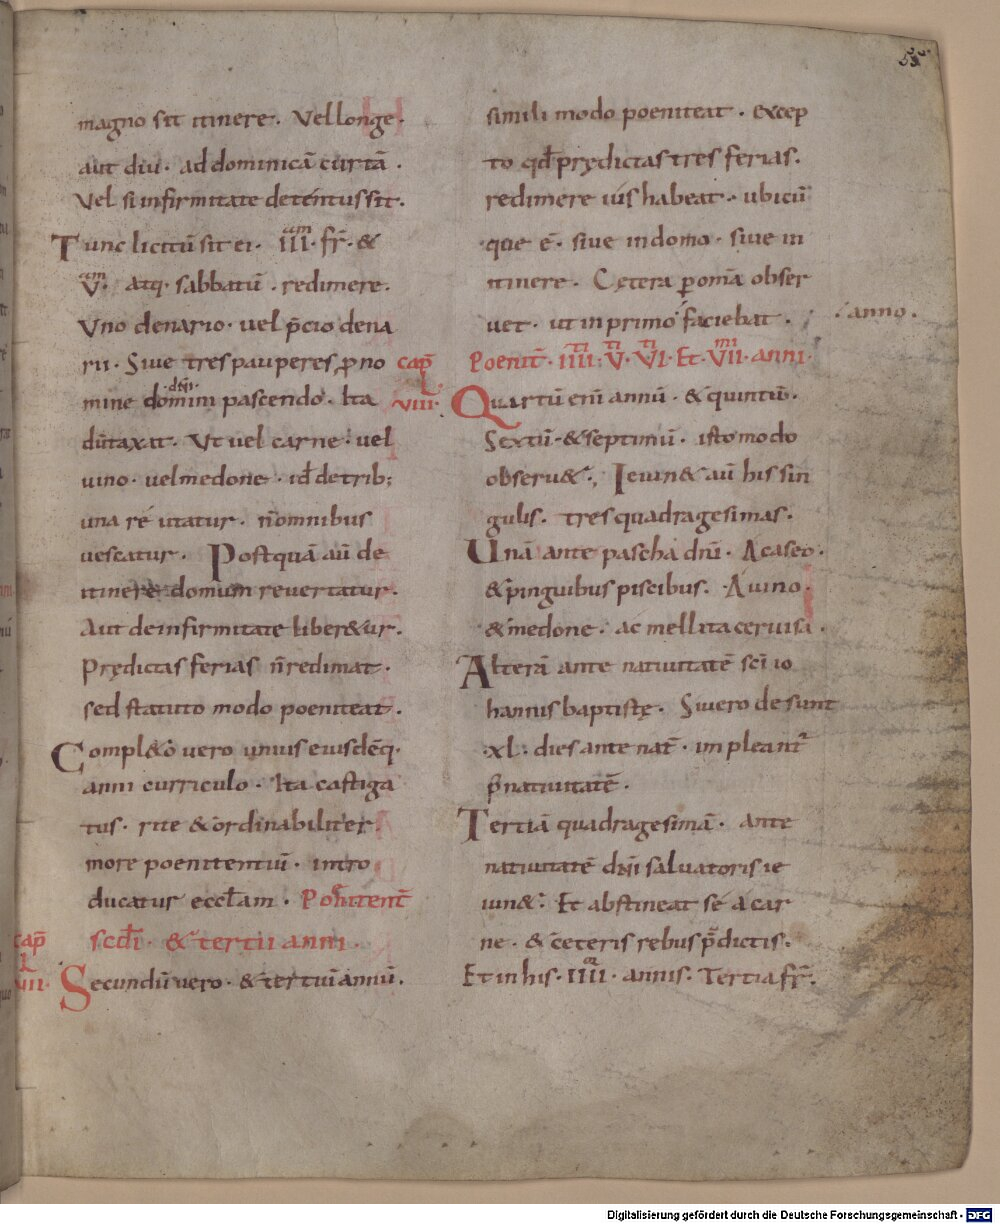 55
magno sit itinere. Vel longe.
aut diu. ad dominicā curtā.
Vel si infirmitate detentus sit.
Tunc licitū sit ei. III am. fr̄. &
V am. atq. sabbatū. redimere.
Vno denario. uel p̄cio dena
rii. Siue tres pauperes ꝓ no
mine domini dn̄i. pascendo. Ita
dūtaxat. Vt uel carne. uel
uino. uel medone. id̄ de trib;
una re utatur. n̄ omnibus
uescatur. Postquā aū de
itinere domum reuertatur.
Aut de infirmitate liber&ur.
Prędictas ferias n̄ redimat.
sed statuto modo poeniteat.
Compl&o uero unius eiusdēq.
anni curriculo. Ita castiga
tus. rite & ordinabiliter
more poenitentiū. intro
ducatur eccl̄am. Poenitent̄
cap̄ L VII. scd̄i. & tertii anni.
Secundū uero. & tertiū annū.
simili modo poeniteat. excep
to qd̄ prędictas tres ferias.
redimere ius habeat. ubicū
que ē. siue in domo. siue in
itinere. Cętera ꝑ om̄a obser
uet. ut in primo faciebat. anno.
cap̄ L VIII. Poenit̄. IIII ti. V ti. VI ti. Et VII mi. anni.
Quartū eni annū. & quintū.
Sextū. & septimū. isto modo
obseru&. Ieiun& aū his sin
gulis. tres quadragesimas.
Unā ante pascha dn̄i. A caseo.
& pinguibus piscibus. A uino.
& medone. ac mellita ceruisa.
Alterā ante natiuitatē sc̄i io
hannis baptistę. Si uero desunt
.xl. dies ante nat̄. impleant̄
p̄ natiuitatē.
Tertiā quadragesimā. ante
natiuitatē dn̄i saluatoris ie
iun&. Et abstineat se a car
ne. & ceteris rebus p̄dictis.
Et in his. IIII or. annis. Tertia fr̄.
Digitalisierung gefördert durch die Deutsche Forschungsgemeinschaft - DFG